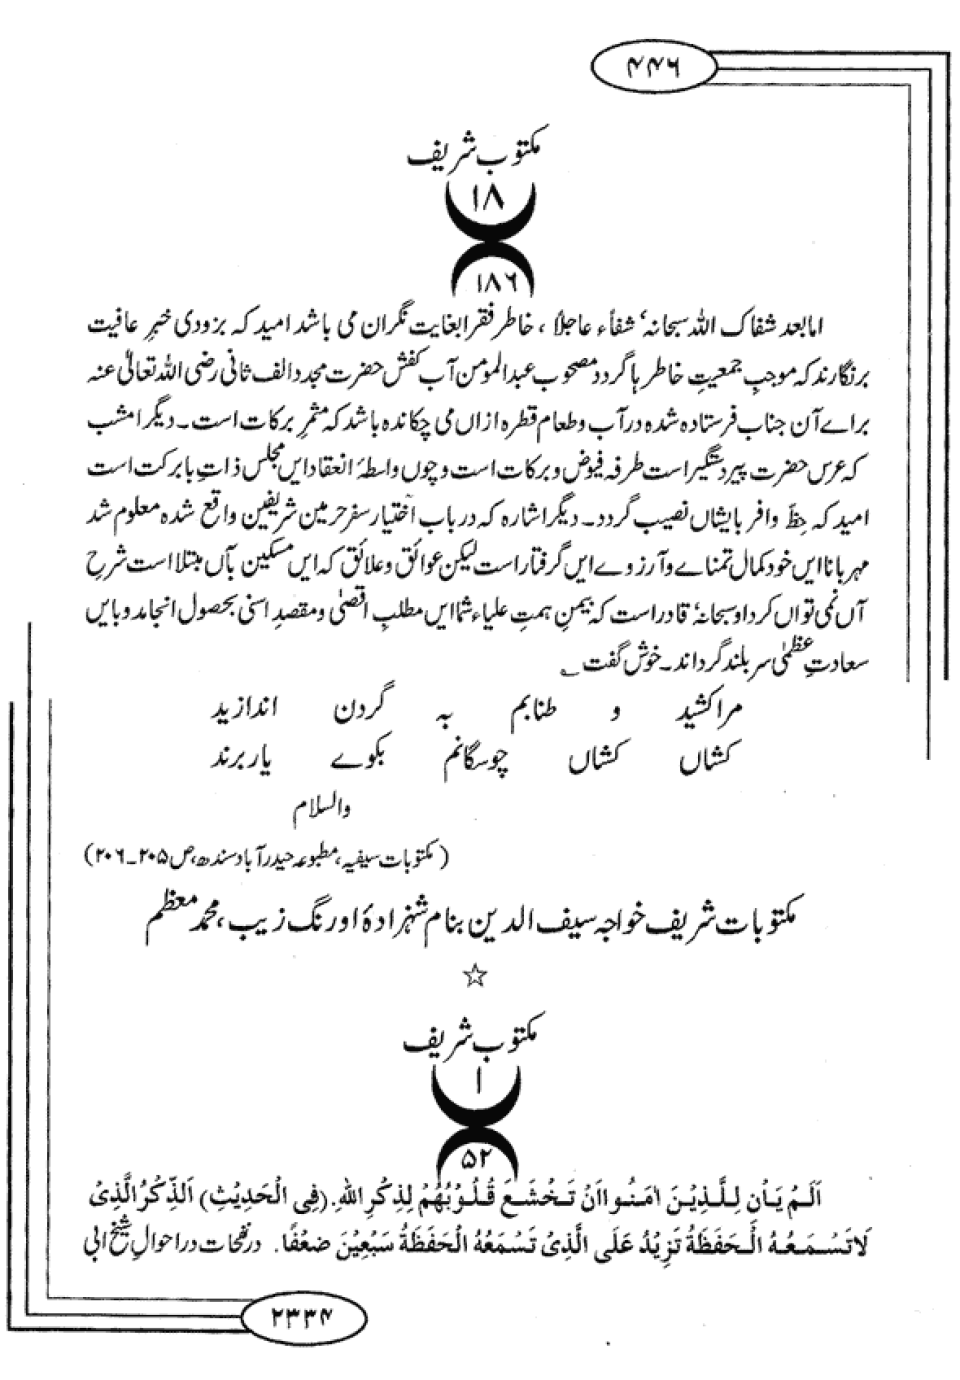 ۴۴۶
مکتوب شریف
۱۸
۱۸۶
امابعد شفاک اللہ سبحانہٗ شفاًء عاجلاً ، خاطر فقرا بغایت نگران می باشد امید کہ بزودی خبرِ عافیت
برنگارند کہ موجبِ جمعیتِ خاطر ہا گردد مصحوب عبدالمومن آب کفش حضرت مجدد الف ثانی رضی اللہ تعالیٰ عنہ
براے آن جناب فرستادہ شدہ در آب و طعام قطرہ ازاں می چکاندہ باشد کہ مثمرِ برکات است ۔ دیگر امشب
کہ عرس حضرت پیر دستگیر است طرفہ فیوض و برکات است و چوں واسطۂ انعقاد ایں مجلس ذاتِ بابرکت است
امید کہ حظِّ وافر بایشاں نصیب گردد ۔ دیگر اشارہ کہ در باب اختیار سفر حرمین شریفین واقع شدہ معلوم شد
مہربانا ایں خود کمال تمناے و آرزوے ایں گرفتار است لیکن عوائق و علائق کہ ایں مسکین بآں مبتلا است شرحِ
آں نمی تواں کرد او سبحانہٗ قادر است کہ بیمنِ ہمتِ علیاء شما ایں مطلبِ اقصیٰ و مقصدِ اسنی بحصول انجامد و بایں
سعادتِ عظمیٰ سربلند گرداند ۔ خوش گفت ؂
مرا کشید و طنابم بہ گردن اندازید
کشاں کشاں چو سگانم بکوے یار برند
والسلام
(مکتوبات سیفیہ، مطبوعہ حیدرآباد سندھ، ص ۲۰۵۔۲۰۶)
مکتوبات شریف خواجہ سیف الدین بنام شہزادۂ اورنگ زیب، محمد معظم
☆
مکتوب شریف
۱
۵۲
اَلَمْ یَاْنِ لِلَّذِیْنَ اٰمَنُوا اَنْ تَخْشَعَ قُلُوْبُھُمْ لِذِکْرِ اللّٰہِ. (فِی الْحَدِیْثِ) اَلذِّکْرُ الَّذِیْ
لَا تَسْمَعُہُ الْحَفَظَةُ تَزِیْدُ عَلَی الَّذِیْ تَسْمَعُہُ الْحَفَظَةُ سَبْعِیْنَ ضِعْفًا. در نفحات در احوالِ شیخ ابی
۲۳۳۴